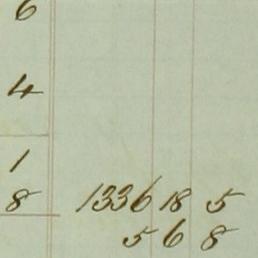 6
4
1
8 1336 18 5
5 6 8